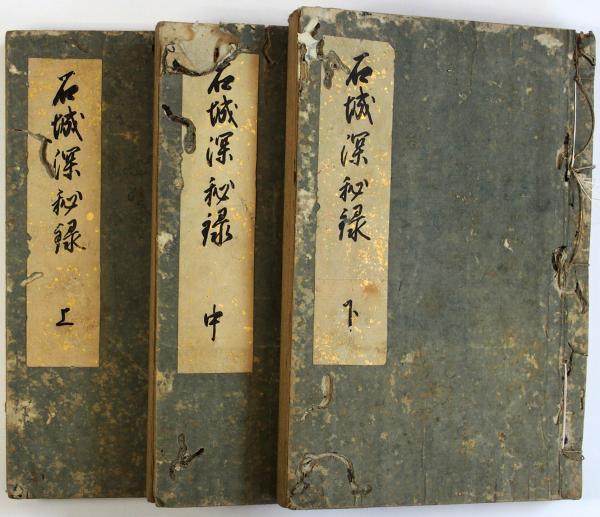 石城深秘録 上
石城深秘録 中
石城深秘録 下